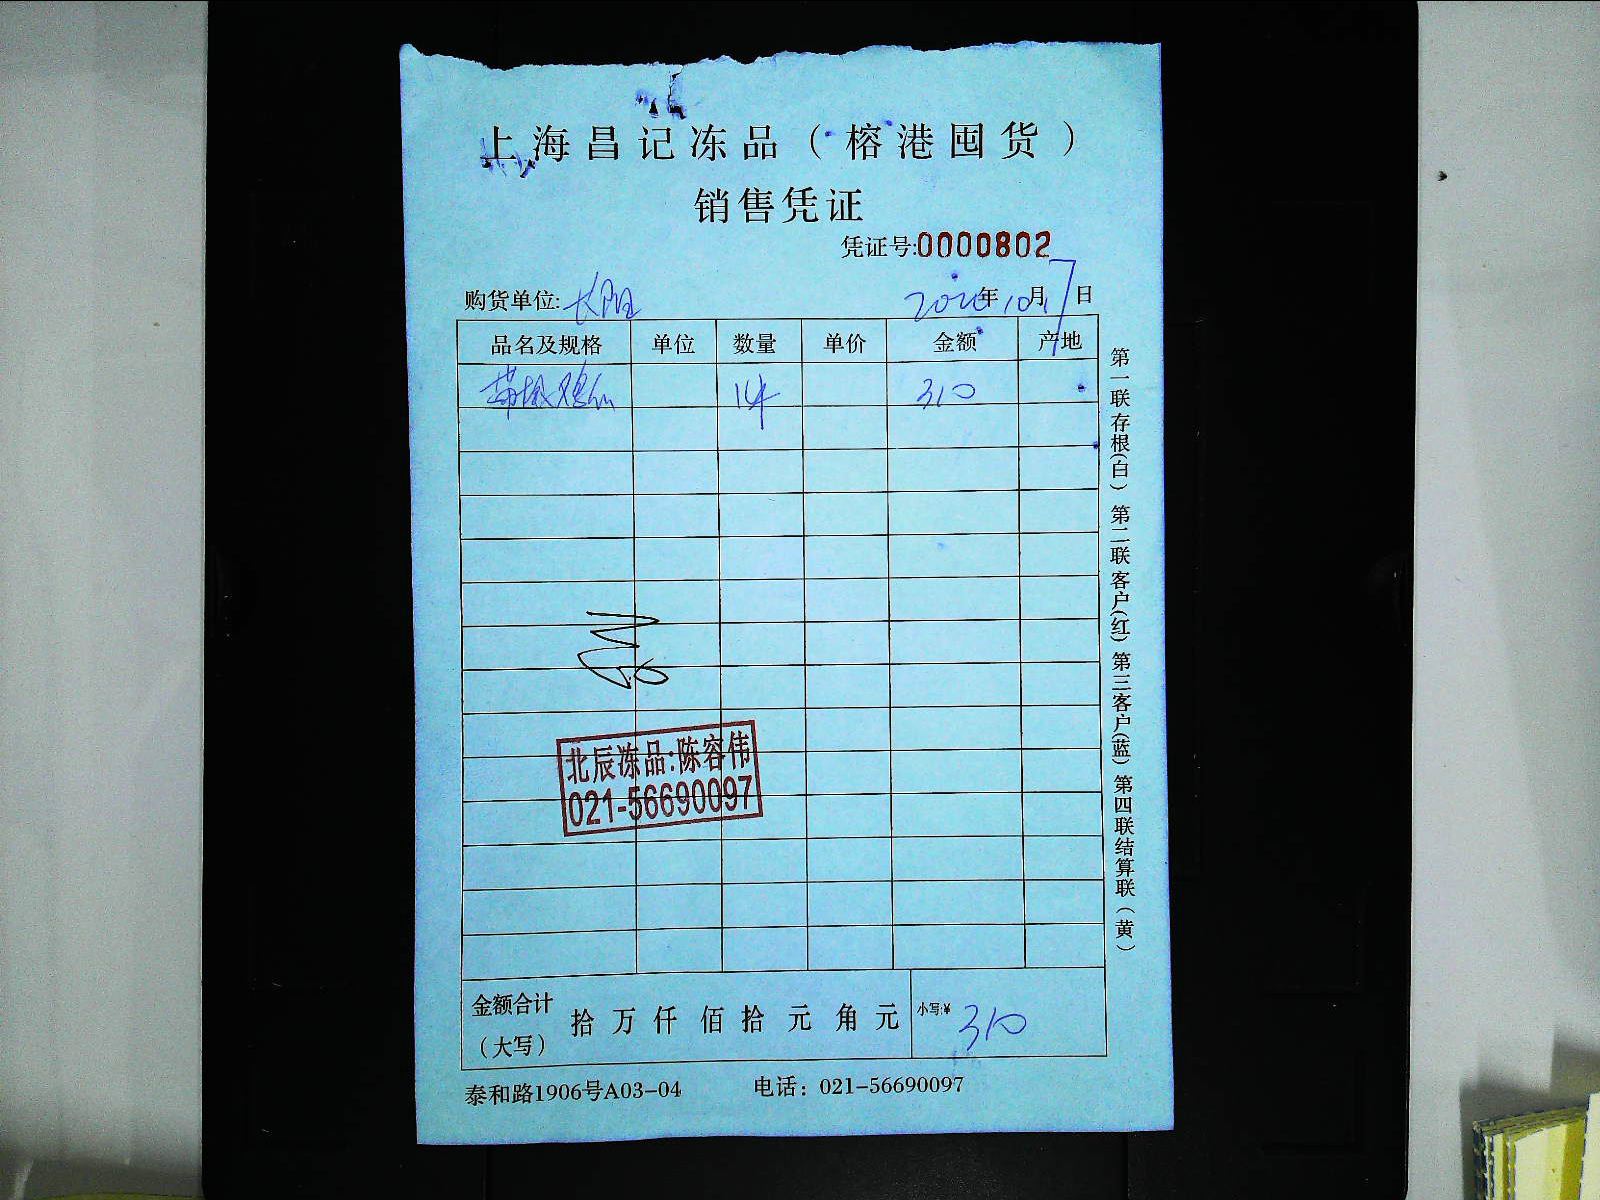 上海昌记冻品（榕港囤货）
销售凭证
凭证号:0000802
购货单位:长阳 2020年10月17日
品名及规格 单位 数量 单价 金额 产地
1件 310
北辰冻品:陈容伟
021-56690097
金额合计（大写） 拾 万 仟 佰 拾 元 角 元 小写:¥ 310
泰和路1906号A03-04 电话：021-56690097
第一联存根(白) 第二联客户(红) 第三客户(蓝) 第四联结算联(黄)